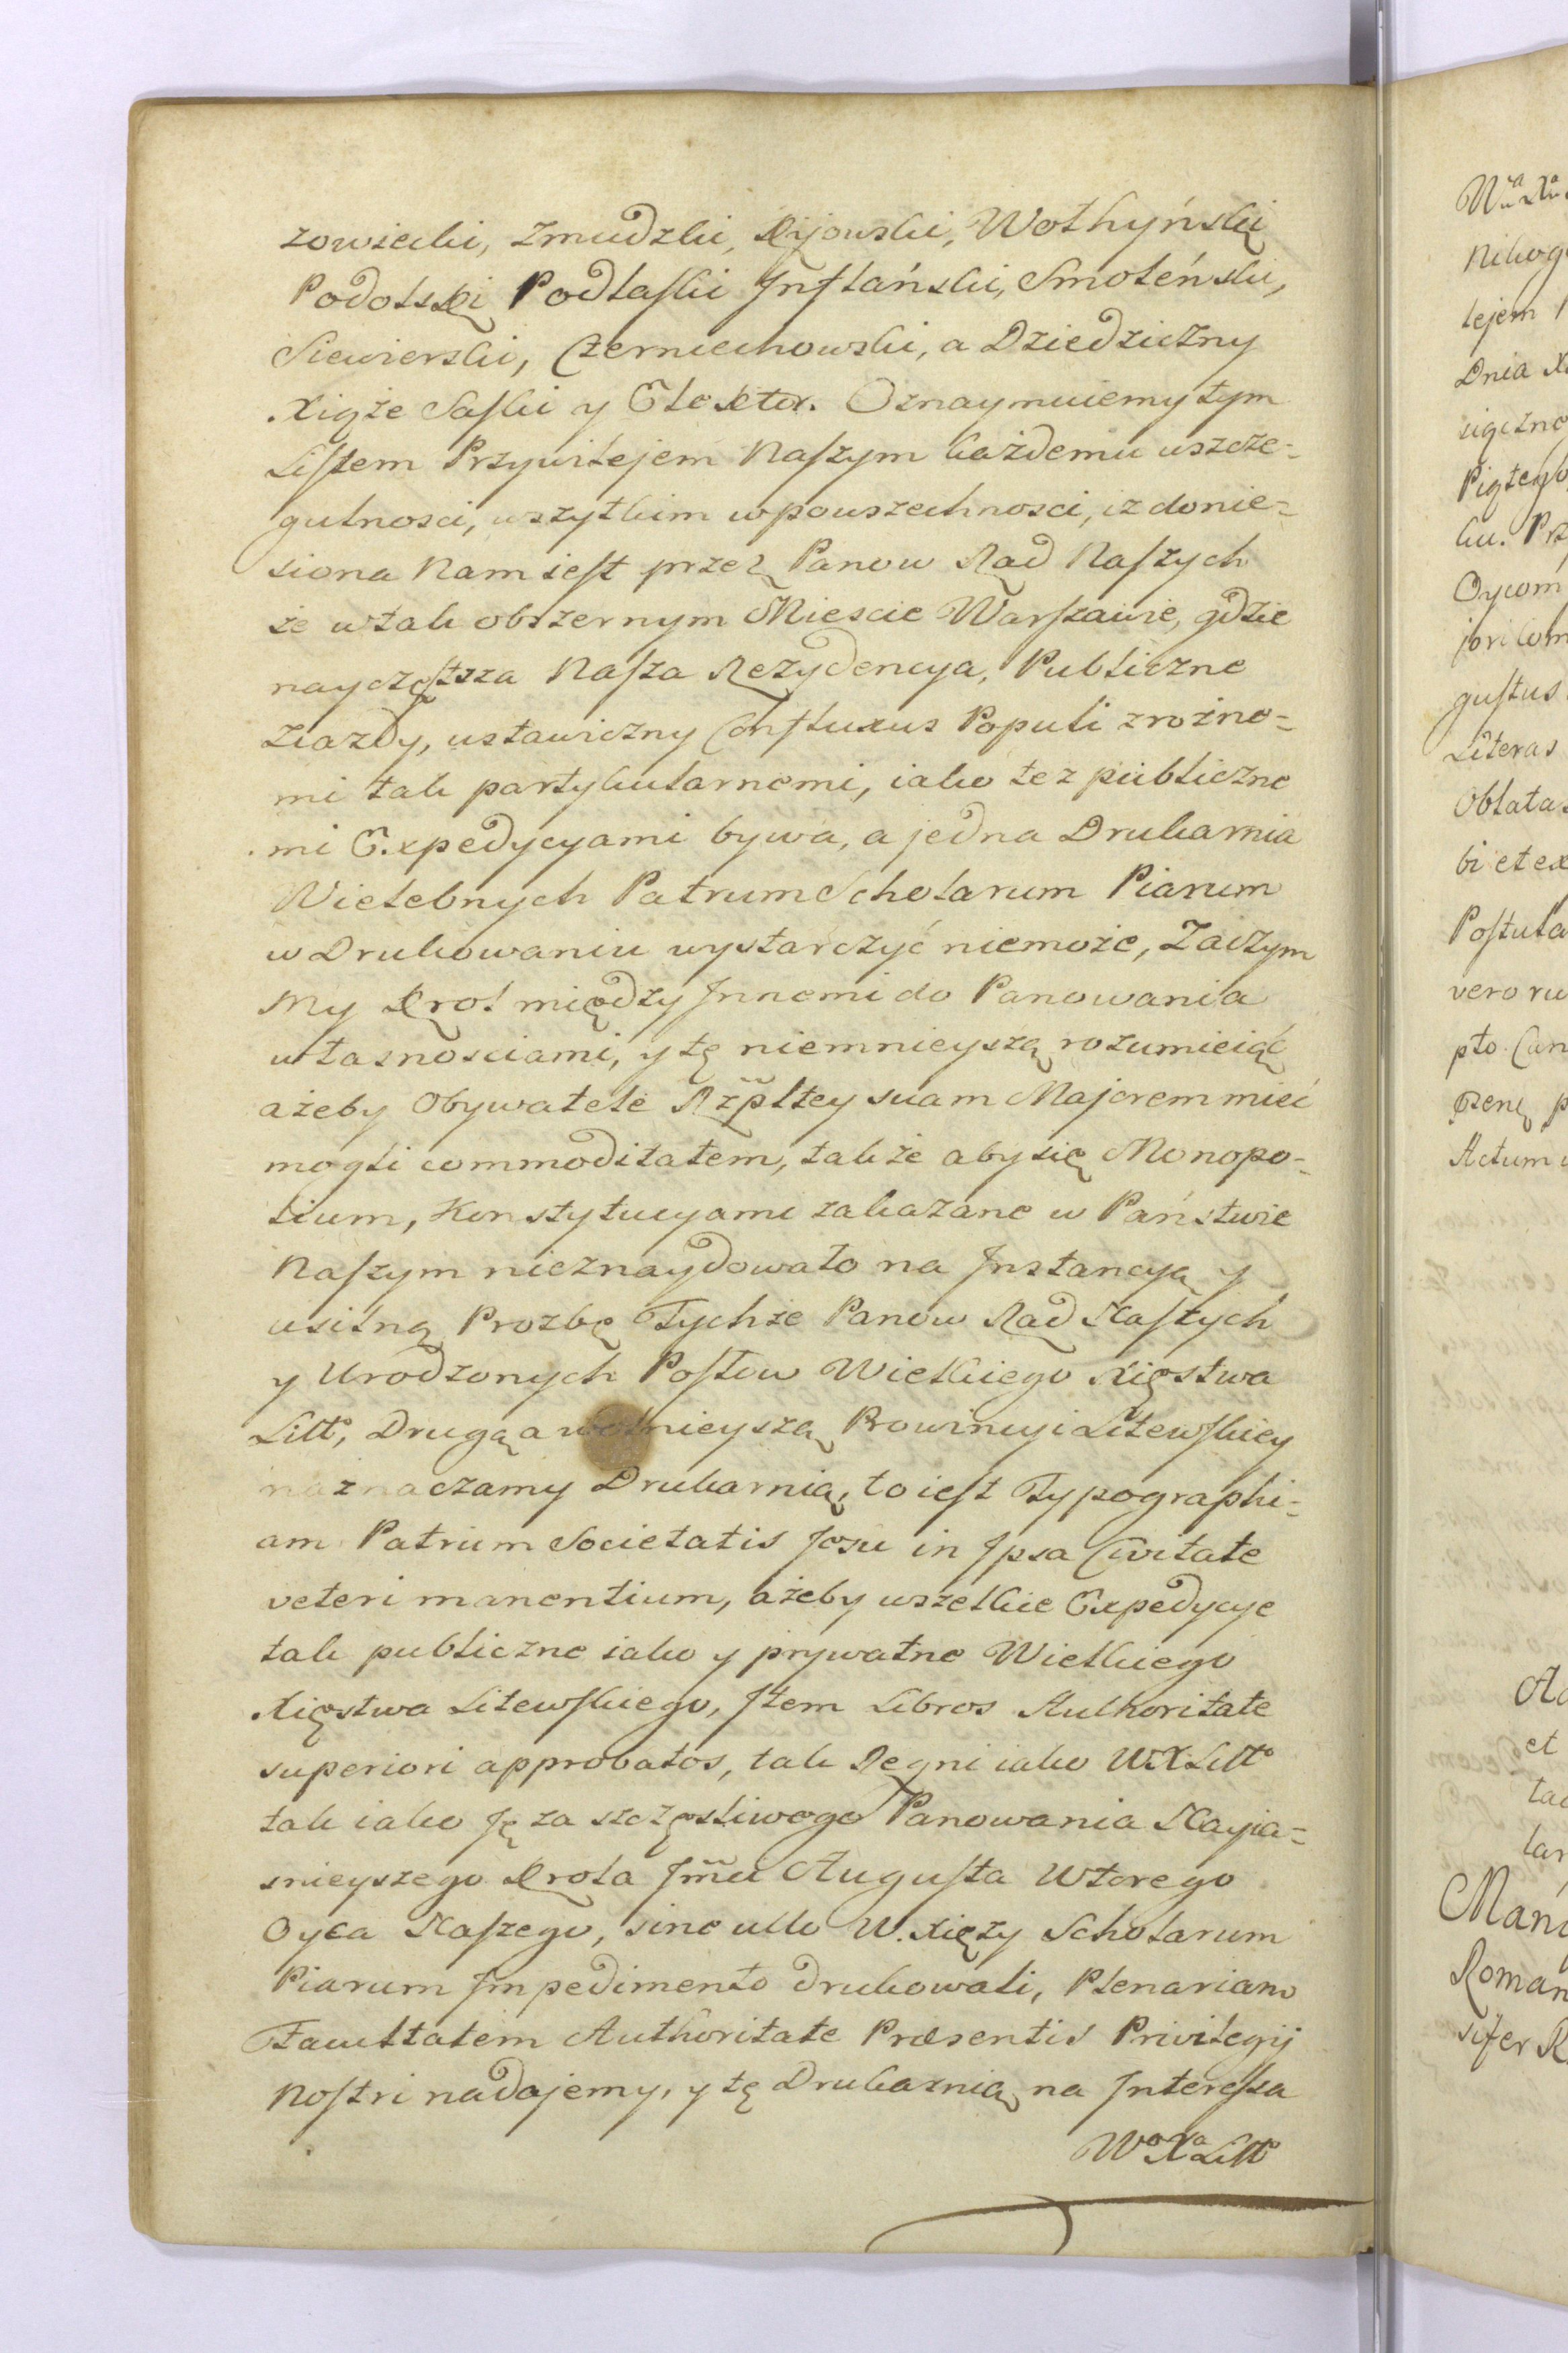 zowiecki, Zmudzki, Kijowski, Wołhyński
Podolski Podlaski Inflański, Smoleński,
Siewierski, Czerniechowski, a Dziedziczny
Xiąże Saski y Elektor. Oznaymuiemy tym
Listem Przywilejem Naszym każdemu wszcze-
gulnosci, wszytkim wpowszechnosci, iz donie-
siona Nam iest przez Panow Rad Naszych
że wtak obszernym Miescie Warszawie, gdzie
nayczęstsza Nasza Rezydencya, Publiczne
Ziazdy, ustawiczny Confluxus Populi zrożne-
mi tak partykularnemi, iako tez publiczne
mi Expedycyami bywa, a jedna Drukarnia
Wielebnych Patrum Scholarum Piarum
w Drukowaniu wystarczyć niemoże, Zaczym
My Krol między Innemi do Panowania
własnosciami, y tę niemnieyszą rozumieiąc
ażeby Obywatele Rzpltey suam Majorem mieć
mogli commoditatem, także aby się Monopo-
lium, Konstytucyami zakazane w Państwie
Naszym nieznaydowało na Instancyą y
usilną Prozbę Tychże Panow Rad Naszych
y Urodzonych Posłow Wielkiego Xięstwa
Litto, Drugą a wolnieyszą Prowincyi Litewskiey
naznaczamy Drukarnią, to iest Typographi-
am Patrum Societatis Jesu in Ipsa Civitate
veteri manentium, ażeby wszelkie Expedycye
tak publiczne iako y prywatne Wielkiego
Xięstwa Litewskiego, Item Libros Authoritate
superiori approbatos, tak Regni iako W.X.Litto
tak iako Ję za szczęsliwego Panowania Nayia-
snieyszego Krola Jmci Augusta Wtorego
Oyca Naszego, sine ullo W. Xięży Scholarum
Piarum Impedimento drukowali, Plenariam
Facultatem Authoritate Præsentis Privilegij
Nostri nadajemy, y tę Drukarnią na Interessa
Wo Xa Litto
Wa Xa
Nikog
lejem
Dnia X
siącznc
Piątego
ku. Prz
Oycom
jori com
gustus
Literas
Oblatas
bi et ex
Postula
vero ru
pto Can
Actum
et
lar
Mani
Roman
sifer R